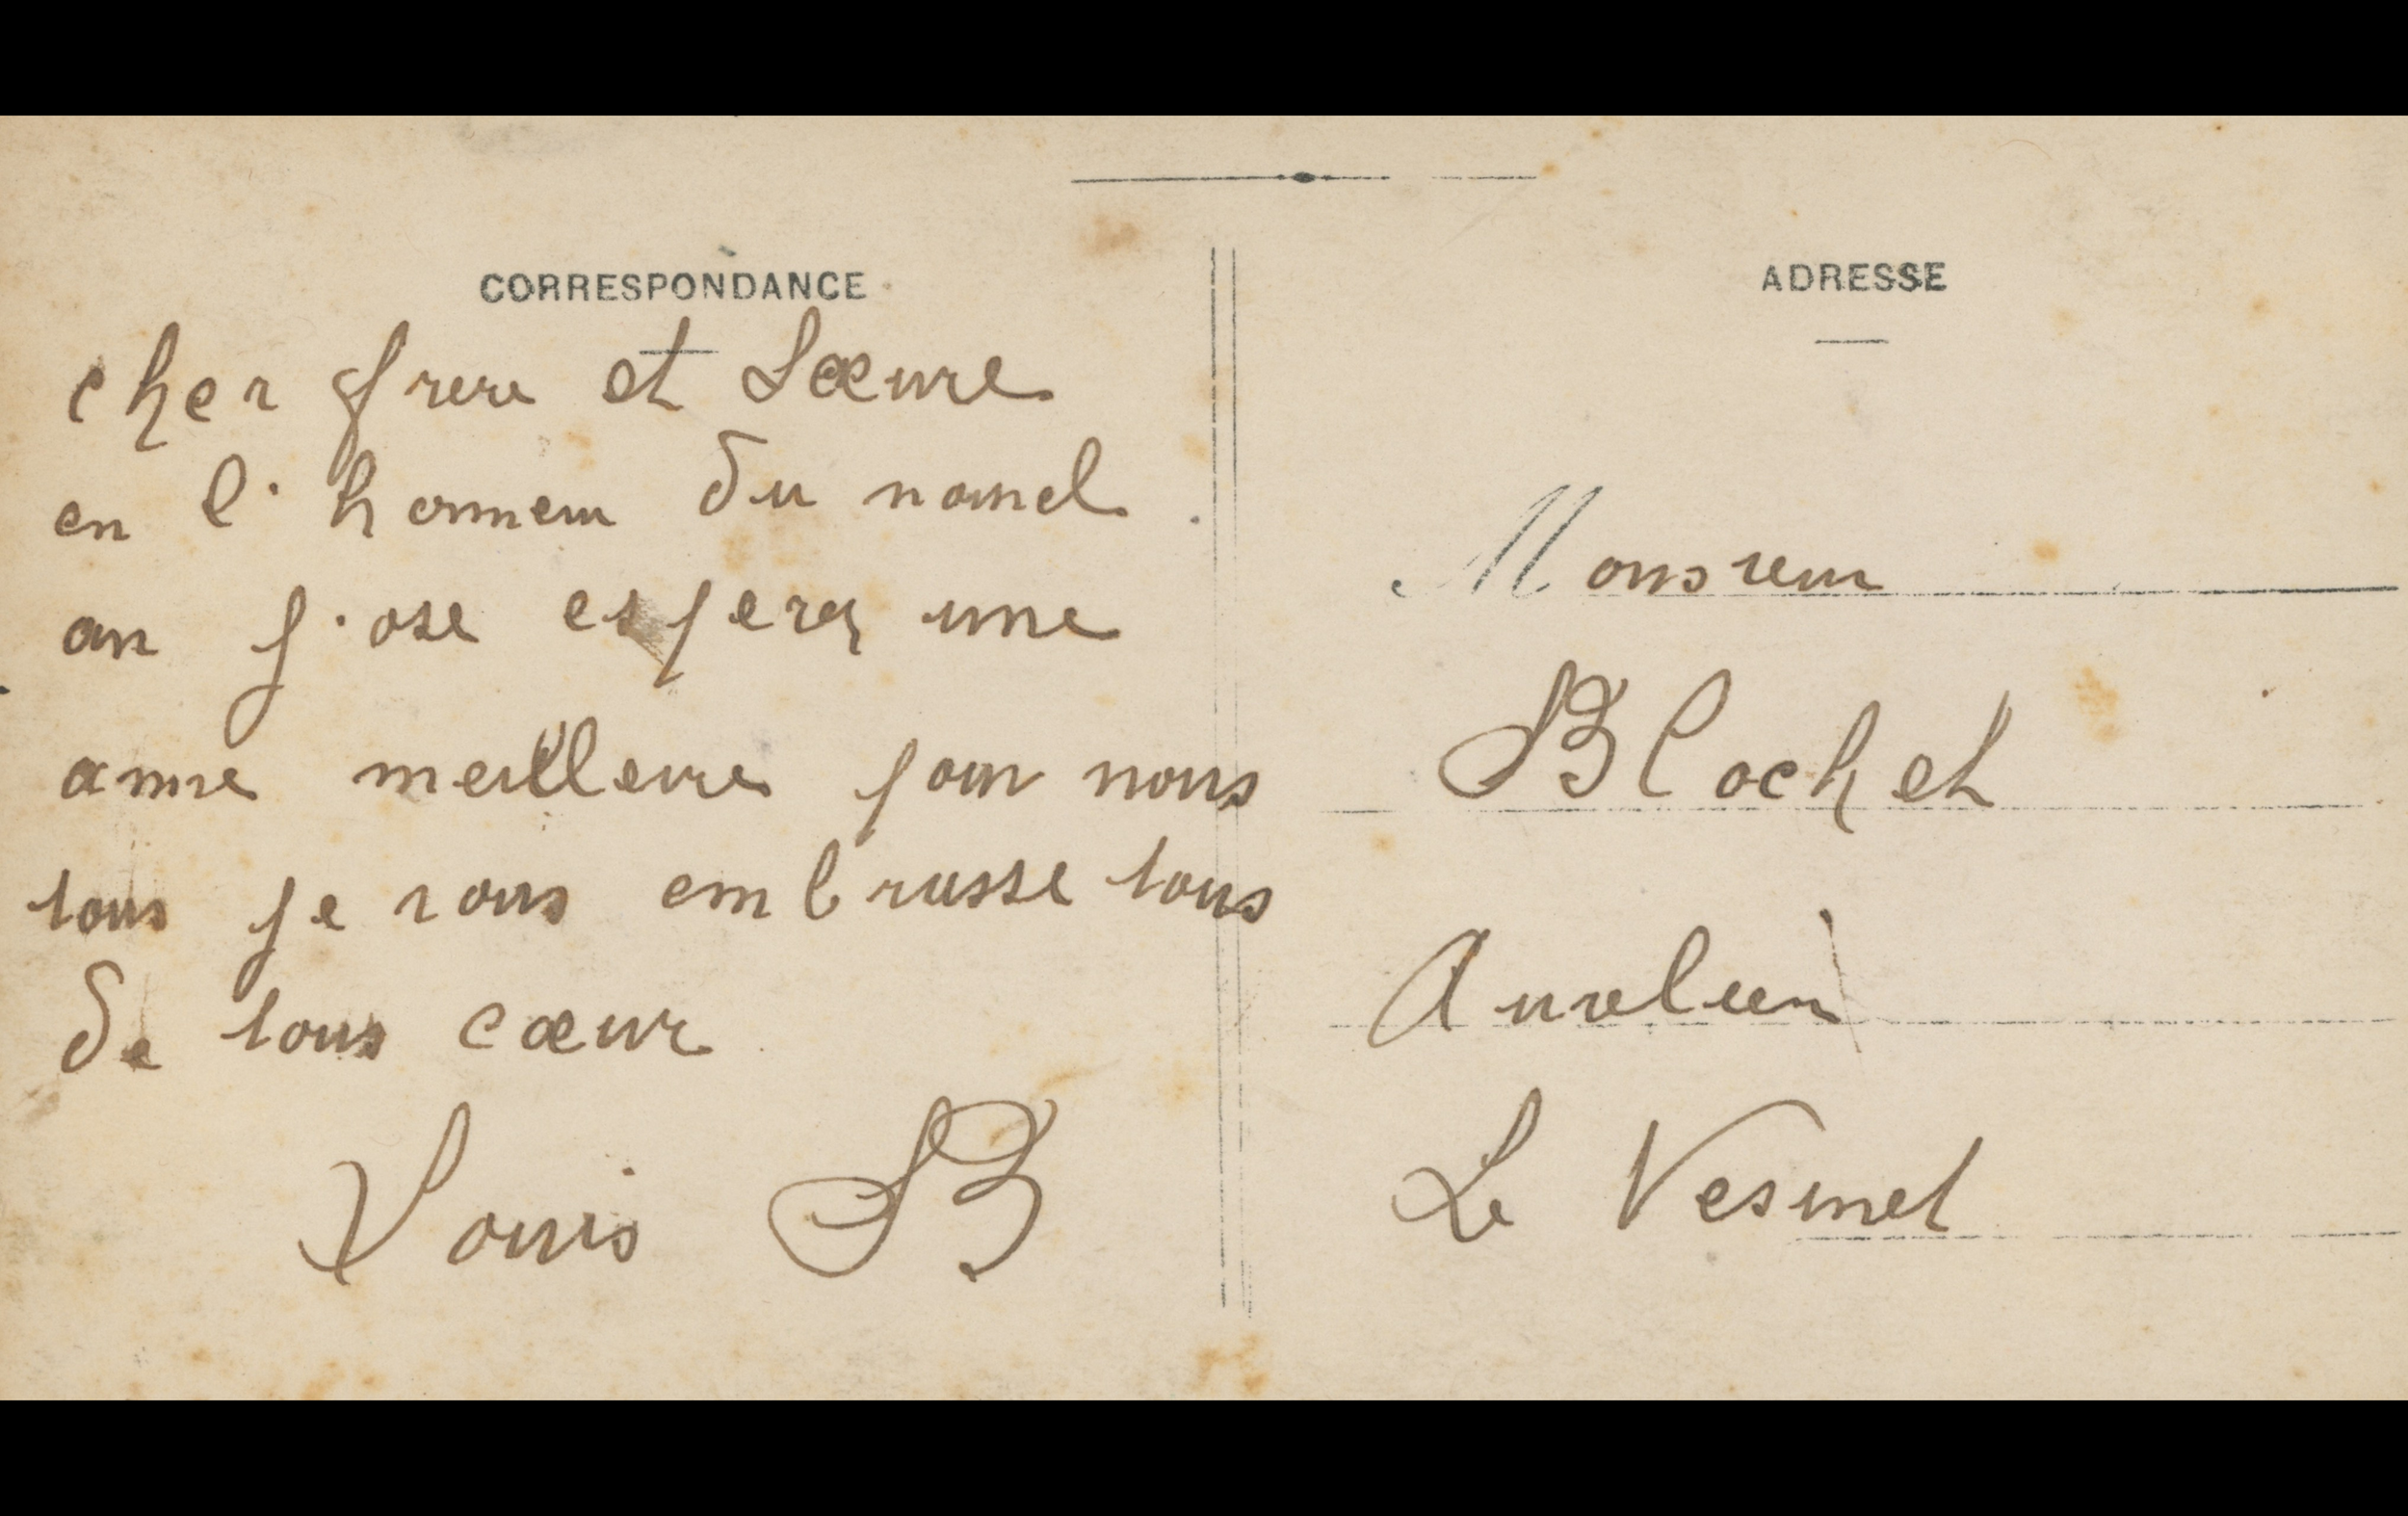 CORRESPONDANCE
cher frere et Sœure
en l'honneur du nouvel
an j'ose esperer une
anne meilleure pour nous
tous je vous embrasse tous
de tous cœur
Louis B
ADRESSE
Monsieur
Blochet
Aurelien
Le Vesinet